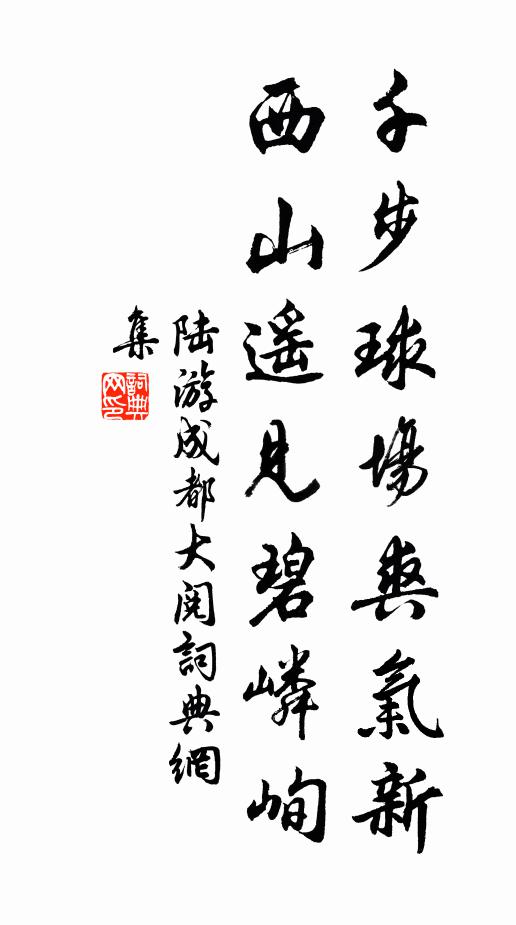 千步球場爽氣新
西山遥見碧嶙峋
陆游成都大阅詞典網
集
詞典
网印